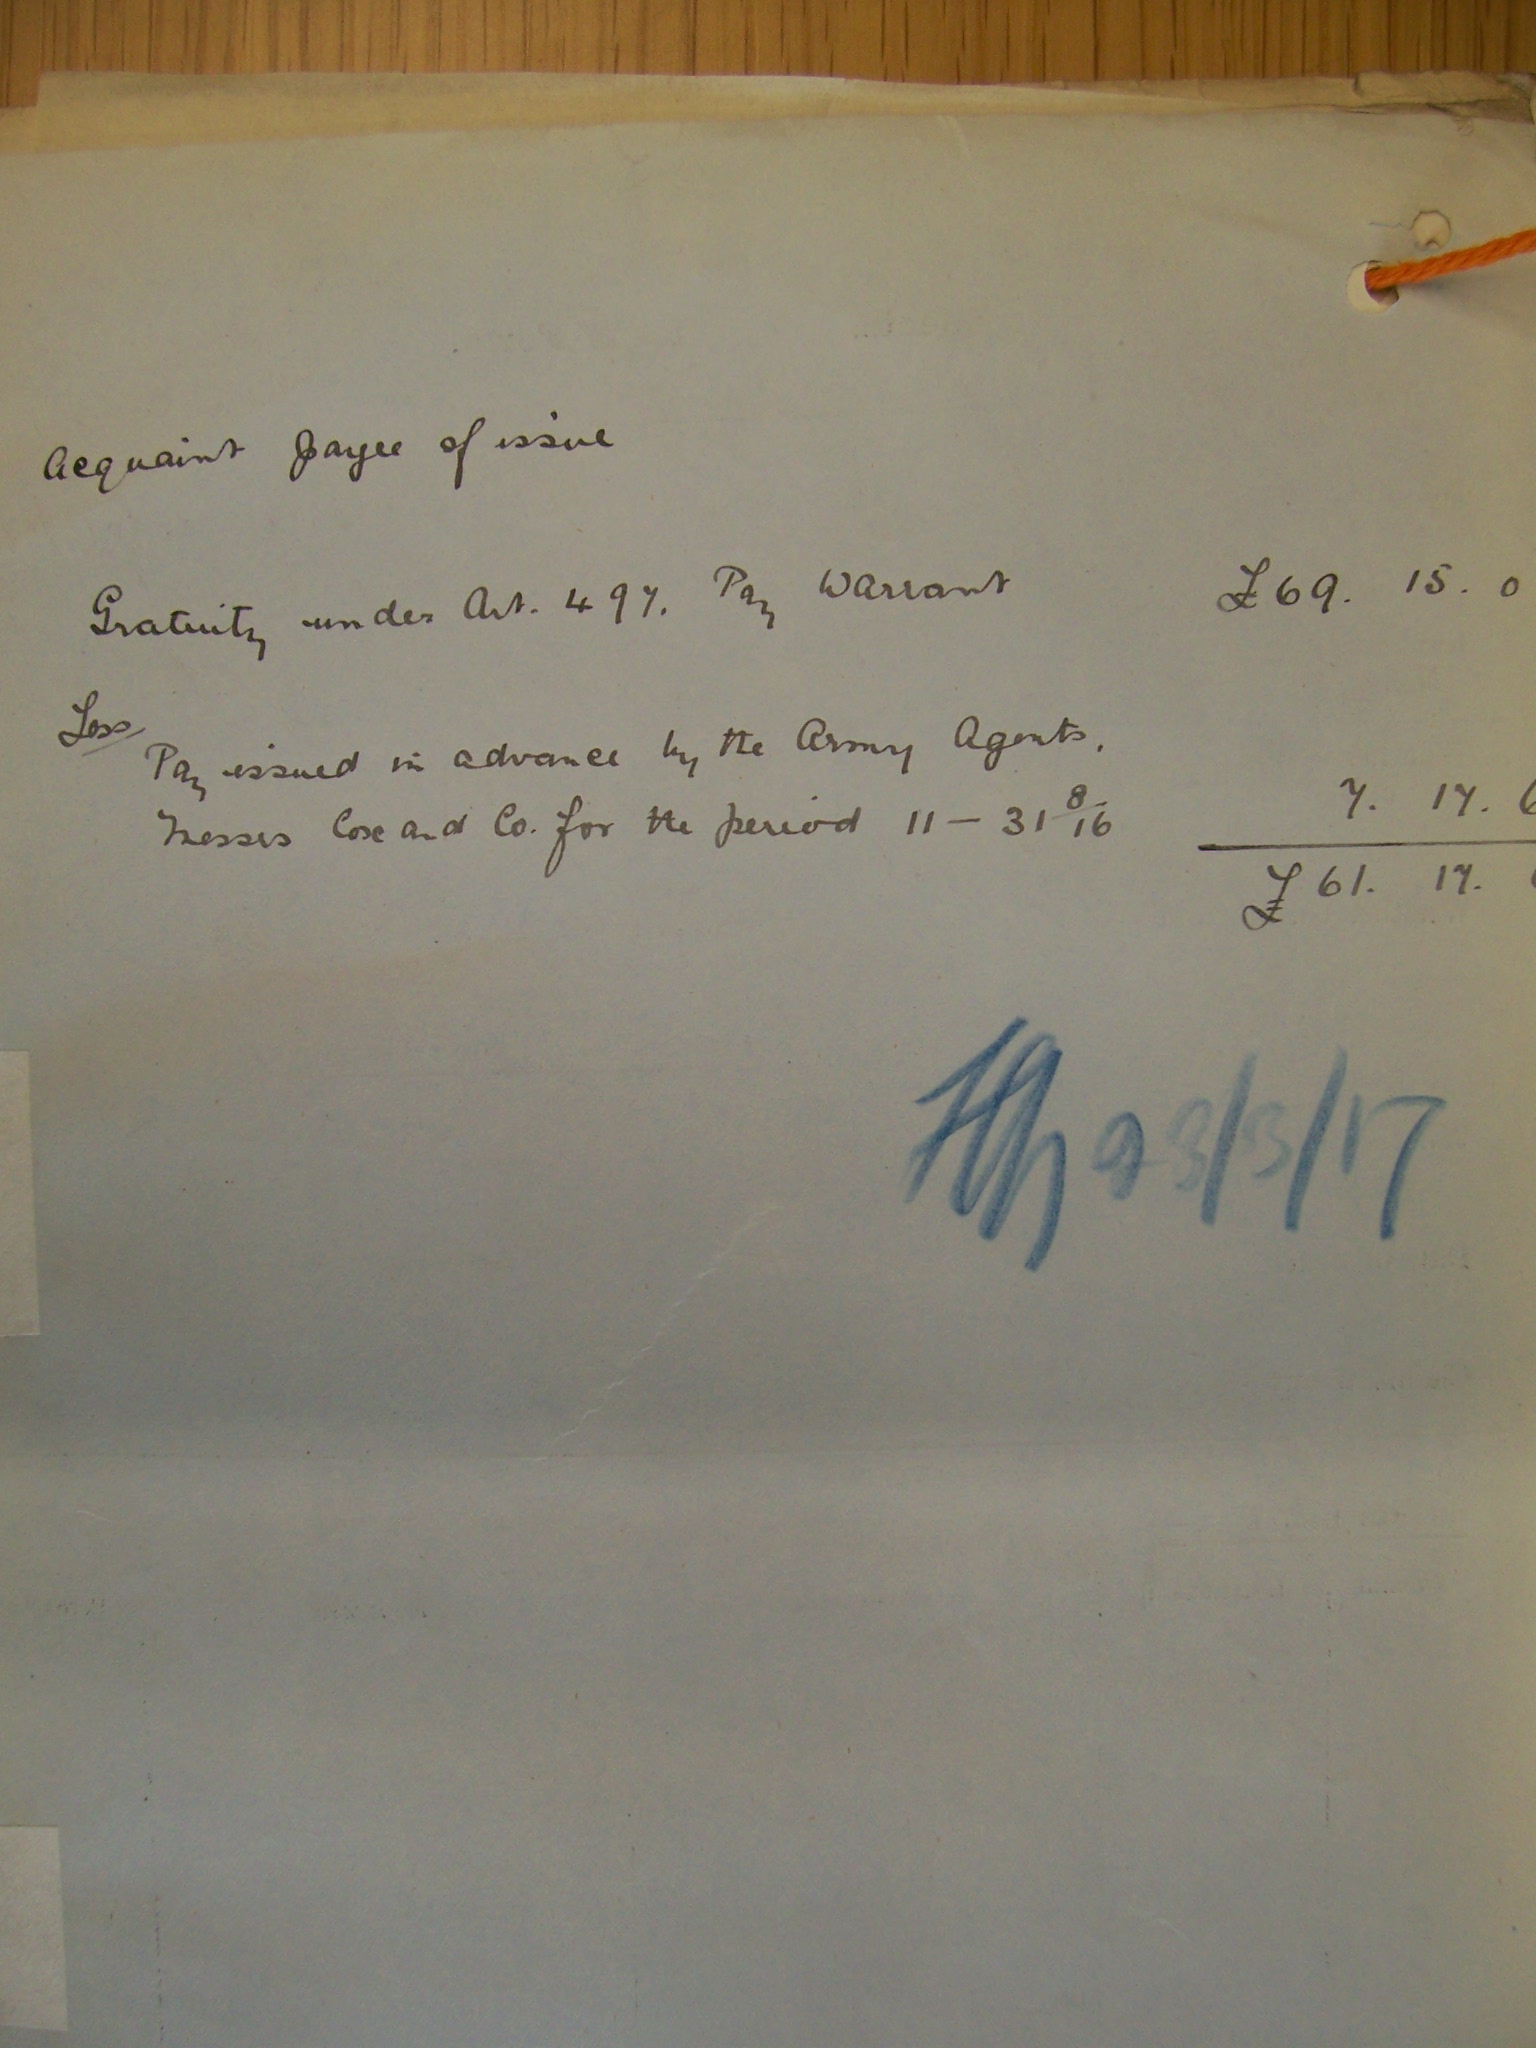 Acquaint payee of issue
Gratuity under Art. 497. Pay Warrant £69. 15. 0
Less
Pay issued in advance by the Army Agents,
Messrs Cox and Co. for the period 11 - 31 8/16 7. 17. 6
£ 61. 17.
23/3/17